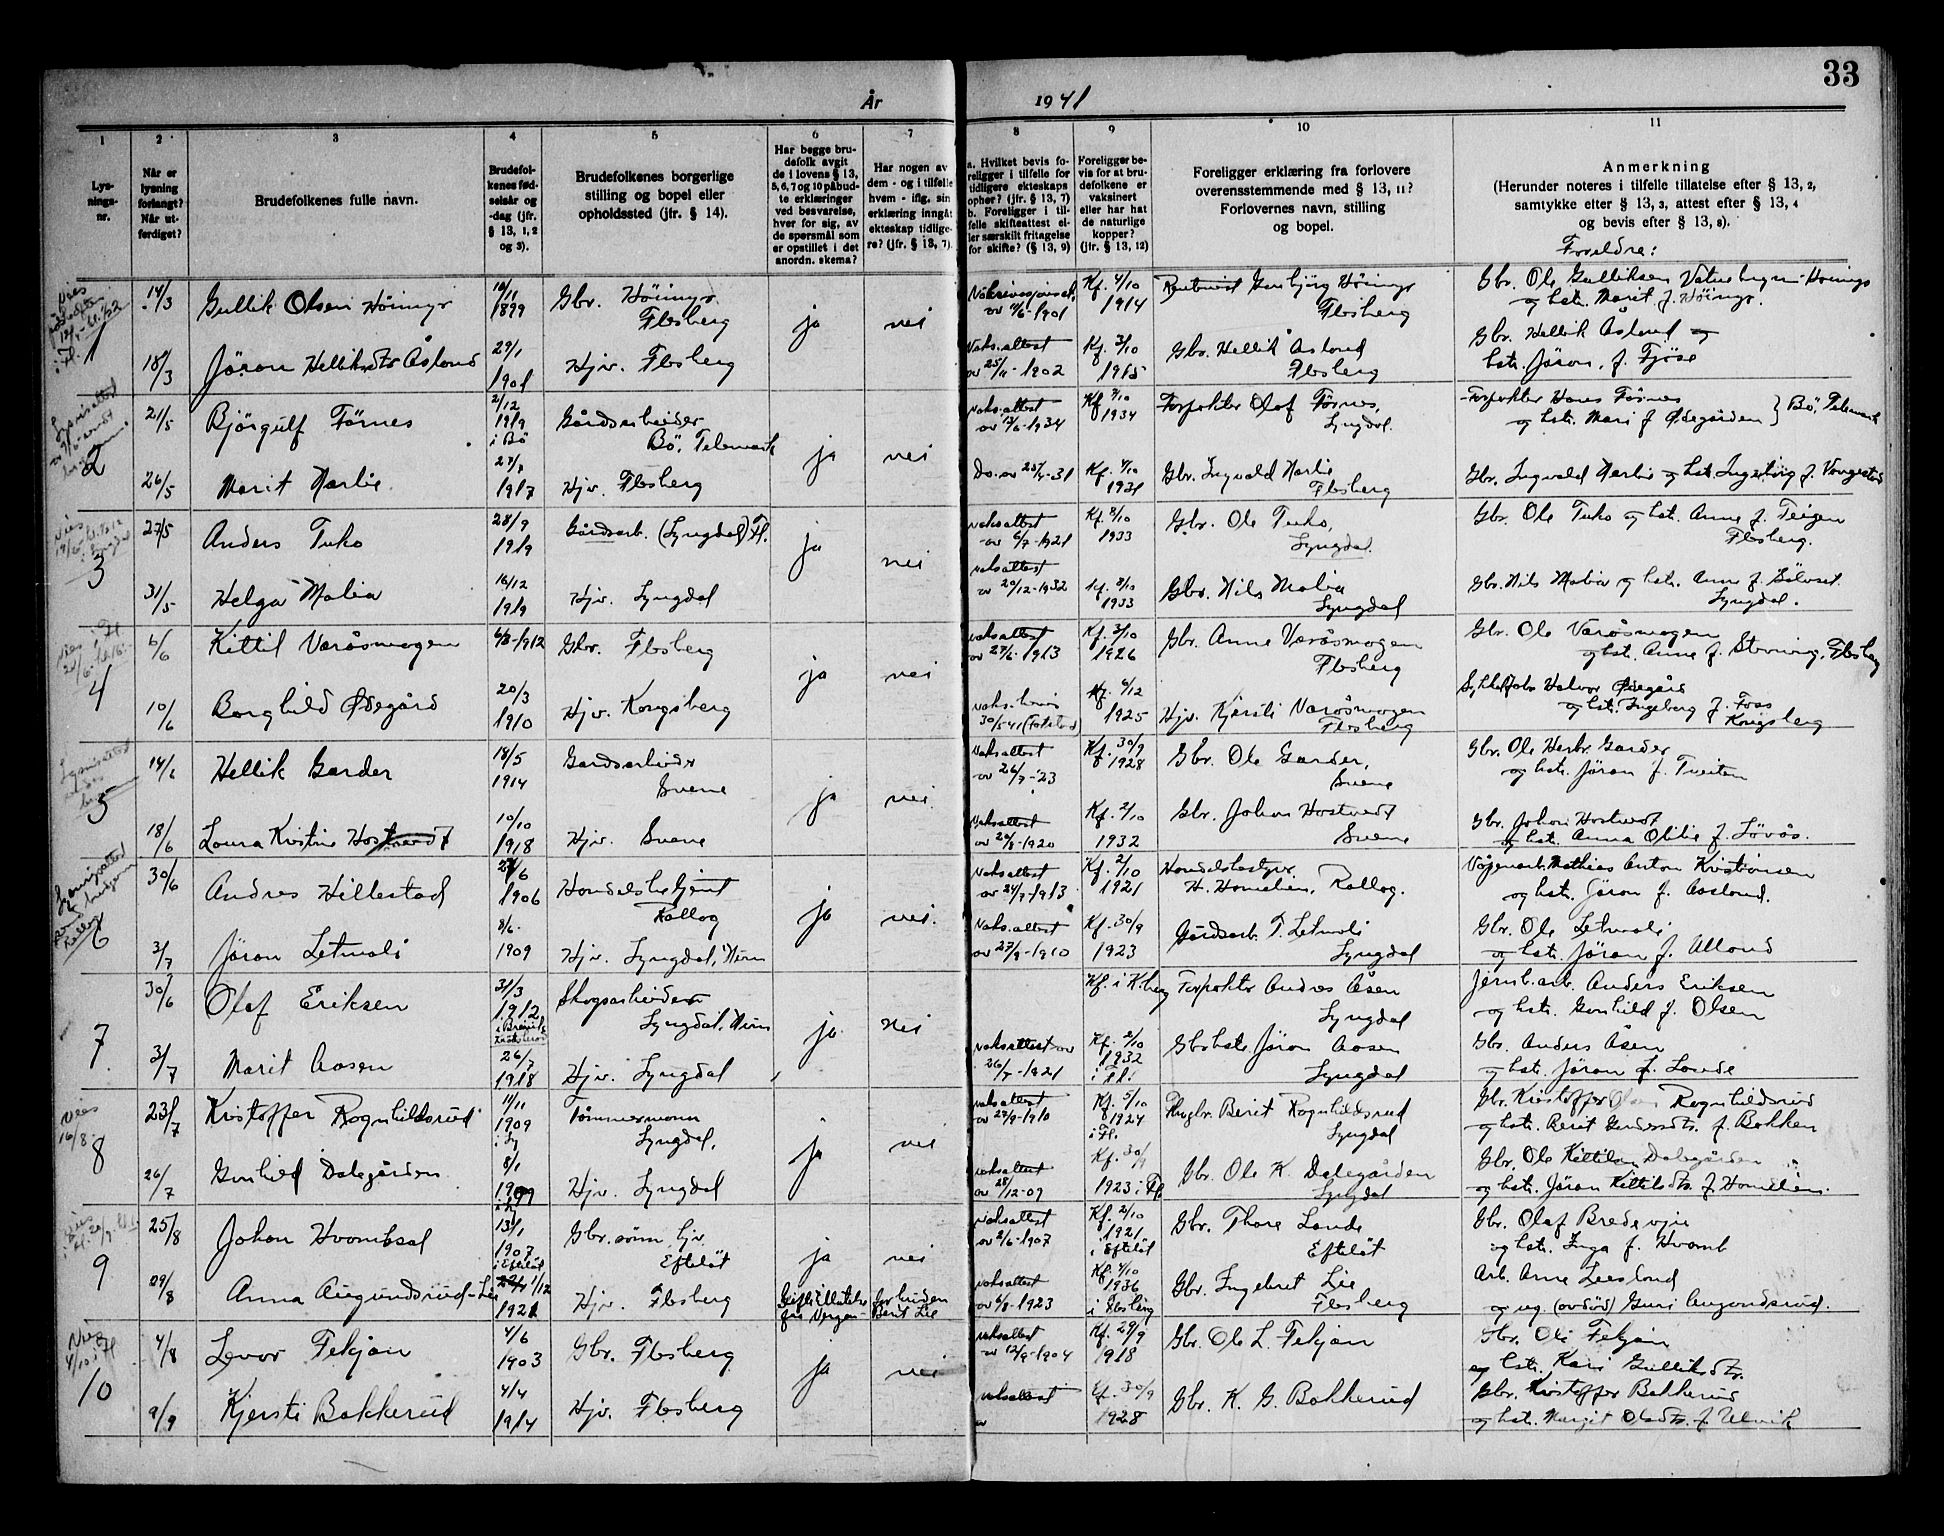 33
År 1941
1
Lys-
nings-
nr.
2
Når er
lysning
forlangt?
Når ut-
ferdiget?
3
Brudefolkenes fulle navn.
4
Brudefol-
kenes fød-
selsår og
-dag (jfr.
§ 13, 1, 2
og 3).
5
Brudefolkenes borgerlige
stilling og bopel eller
opholdssted (jfr. § 14).
6
Har begge bru-
defolk avgit
de i lovens § 13,
5, 6, 7 og 10 påbud-
te erklæringer
ved besvarelse,
hver for sig, av
de spørsmål som
er opstillet i det
anordn. skema?
7
Har nogen av
dem - og i tilfelle
hvem - iflg. sin
erklæring inngått
ekteskap tidlige-
re? (jfr. § 13, 7).
8
a. Hvilket bevis fo-
religger i tilfelle for
tidligere ekteskaps
ophør? (jfr. § 13, 7)
b. Foreligger i til-
felle skifteattest el-
ler særskilt fritagelse
for skifte? (§ 13, 9)
9
Foreligger be-
vis for at bru-
defolkene er
vaksinert
eller har hat
de naturlige
kopper?
(jfr. § 13, 12)
10
Foreligger erklæring fra forlovere
overensstemmende med § 13, 11?
Forlovernes navn, stilling
og bopel.
11
Anmerkning
(Herunder noteres i tilfelle tillatelse efter § 13, 2,
samtykke efter § 13, 3, attest efter § 13, 4
og bevis efter § 13, 8).
Foreldre:
1
14/3 Gullik Olsen Höimyr 1899 Gbr. Höimyr
Flesberg ja nei
av 11/6-1901 Kf. 4/10 1914 Gunbjörg Höimyr
Flesberg
Gbr. Ole Gulliksen Höimyr
og hst. Marit f. Höimyr.
18/3 Jöran Helliksdtr Åslund 29/1 1901 Hjv. Flesberg
Vaks.attest av 25/11-1902 Kf. 3/10 1915 Gbr. Hellik Åslund
Flesberg
Gbr. Hellik Åslund og
hst. Jöran, f. Fjöse
2
21/5 Björgulf Förnes 2/12 1919 i Bö Gårdsarbeider
Bö, Telemark ja nei
Vaks.attest av 12/6-1934 Kf 7/10 1934 Forpakter Olaf Förnes,
Lyngdal.
Forpakter Hans Förnes
og hst. Mari f Ødegården } Bö, Telemark
26/5 Marit Narlie 1917 Hjv. Flesberg
Do. av -31 Kf. 4/10 1931 Gbr. Ingvald Narlie
Flesberg
Gbr. Ingvald Narlie og hst. Ingebörg f. Vangestad
3
27/5 Anders Tuko 28/9 1919 Gårdsarb. (Lyngdal) Fl. ja nei
Vaksattest av 6/7-1921 Kf. 8/10 1933 Gbr. Ole Tuko,
Lyngdal.
Gbr. Ole Tuko og hst. Anne f. Teigen
Flesberg.
31/5 Helga Malia 16/12 1919 Hjv. Lyngdal
Vaksattest av 20/12-1932 Kf. 8/10 1933 Gbr. Nils Malia
Lyngdal
Gbr. Nils Malia og hst. Anne f.
Lyngdal.
4
6/6 Kittil Væråsmogen 6/3-1912 Gbr. Flesberg ja nei
Vaksattest av 27/6-1913 Kf. 3/10 1926 Gbr. Anne Væråsmogen
Flesberg
Gbr. Ole Væråsmogen
og hst. Anne f. Stevning, Flesberg
10/6 Borghild Ødegård 20/3 1910 Hjv. Kongsberg
30/5-41 Kf. 6/12 1925 Hjv. Kjersti Væråsmogen
Flesberg
Halvor Ødegård
og hst. Ingeborg f. Foss
Kongsberg
5
14/6 Hellik Garder 18/5 1914 Gardsarbeider
Svene ja nei
Vaksattest av 26/7-23 Kf. 30/9 1928 Gbr. Ole Garder,
Svene
Gbr. Ole Herbr. Garder
og hst. Jöran f. Tveiten
18/6 Laura Kristine Hostvedt 10/10 1918 Hjv. Svene
Vaksattest av 20/8-1920 Kf. 2/10 1932 Gbr. Johan Hostvedt
Svene
Gbr. Johan Hostvedt
og hst. Anna Otilie f. Lövås.
6
30/6 Andres Hillestad 1906 Handelsbetjent
Rollag ja nei.
Vaksattest av 24/7-1913 Kf. 2/10 1921 Handelsbestyrer
H. Homelien, Rollag.
Mathias Anton Kristiansen
og hst. Jöran f. Aaslund.
3/7 Jöran Letmoli 8/6. 1909 Hjv. Lyngdal, Num
Vaks.attest av 27/9-1910 Kf. 30/9 1923 Gårdsarb. T. Letmoli
Lyngdal
Gbr. Ole Letmoli
og hst. Jöran f.
7
30/6 Olaf Eriksen 31/3 1912 Skogsarbeider
Lyngdal, Num ja nei
Kf. i K.berg Forpakter Andres Åsen
Lyngdal
Jernb.arb. Anders Eriksen
og hst. Gunhild f. Olsen
3/7 Marit Aasen 26/7 1918 Hjv. Lyngdal
Vaksattest av 26/7-1921 Kf. 2/10 1932 i Fl. Gbr.hst. Jöran Aasen
Lyngdal
Gbr. Anders Åsen
og hst. Jöran f. Lande
8
Vies 16/8
23/7 Kristoffer Rognhildsrud 11/11 1909 i Ly Tömmermann
Lyngdal, ja nei
Vaksattest av 27/9-1910 Kf. 5/10 1924 i Fl. Berit Rognhildsrud
Lyngdal
Gbr. Kristoffer Rognhildsrud
og hst. Berit f. Bakken
26/7 Gunhild Dalegården 8/1 1909 Hjv. Lyngdal
Vaksattest av 28/12-09 Kf. 30/9 1923 i Fl Gbr. Ole K. Dalegården
Lyngdal
Gbr. Ole Kittilsen Dalegården
og hst. Jöran Kittilsdtr. f. Homelien.
9
25/8 Johan Hvambsal 13/1 1907 i Efteløt Gbr.sönn, hjv.
Efteløt ja nei
Vaksattest av 2/6-1907 Kf. 2/10 1921 i Efteløt Gbr. Thore Lande
Efteløt
Gbr. Olaf Bredevjie
og hst. Inga f. Hvamb
29/8 Anna Augundsrud-Lie 1/12 1921 Hjv. Flesberg
Berit Lie
Vaksattest av 6/8-1923 Kf. 4/10 1936 i Flesberg Gbr. Ingebret Lie
Flesberg
Arb. Arne Leeslund
og ug. (avdöd) Guri Augundsrud.
10
4/8 Levor Tekjan 4/6 1903 Gbr. Flesberg ja nei
Vaksattest av 12/9-1904 Kf. 29/9 1918 Gbr. Ole L. Tekjan
Gbr. Ole Tekjan
og hst. Kari Gulliksdtr.
9/9 Kjersti Bakkerud 4/4 1914 Hjv. Flesberg
Vaksattest av Kf. 30/9 1928 Gbr. K. G. Bakkerud
Gbr. Kristoffer Bakkerud
og hst. Margit Olsdtr. f. Ulevik